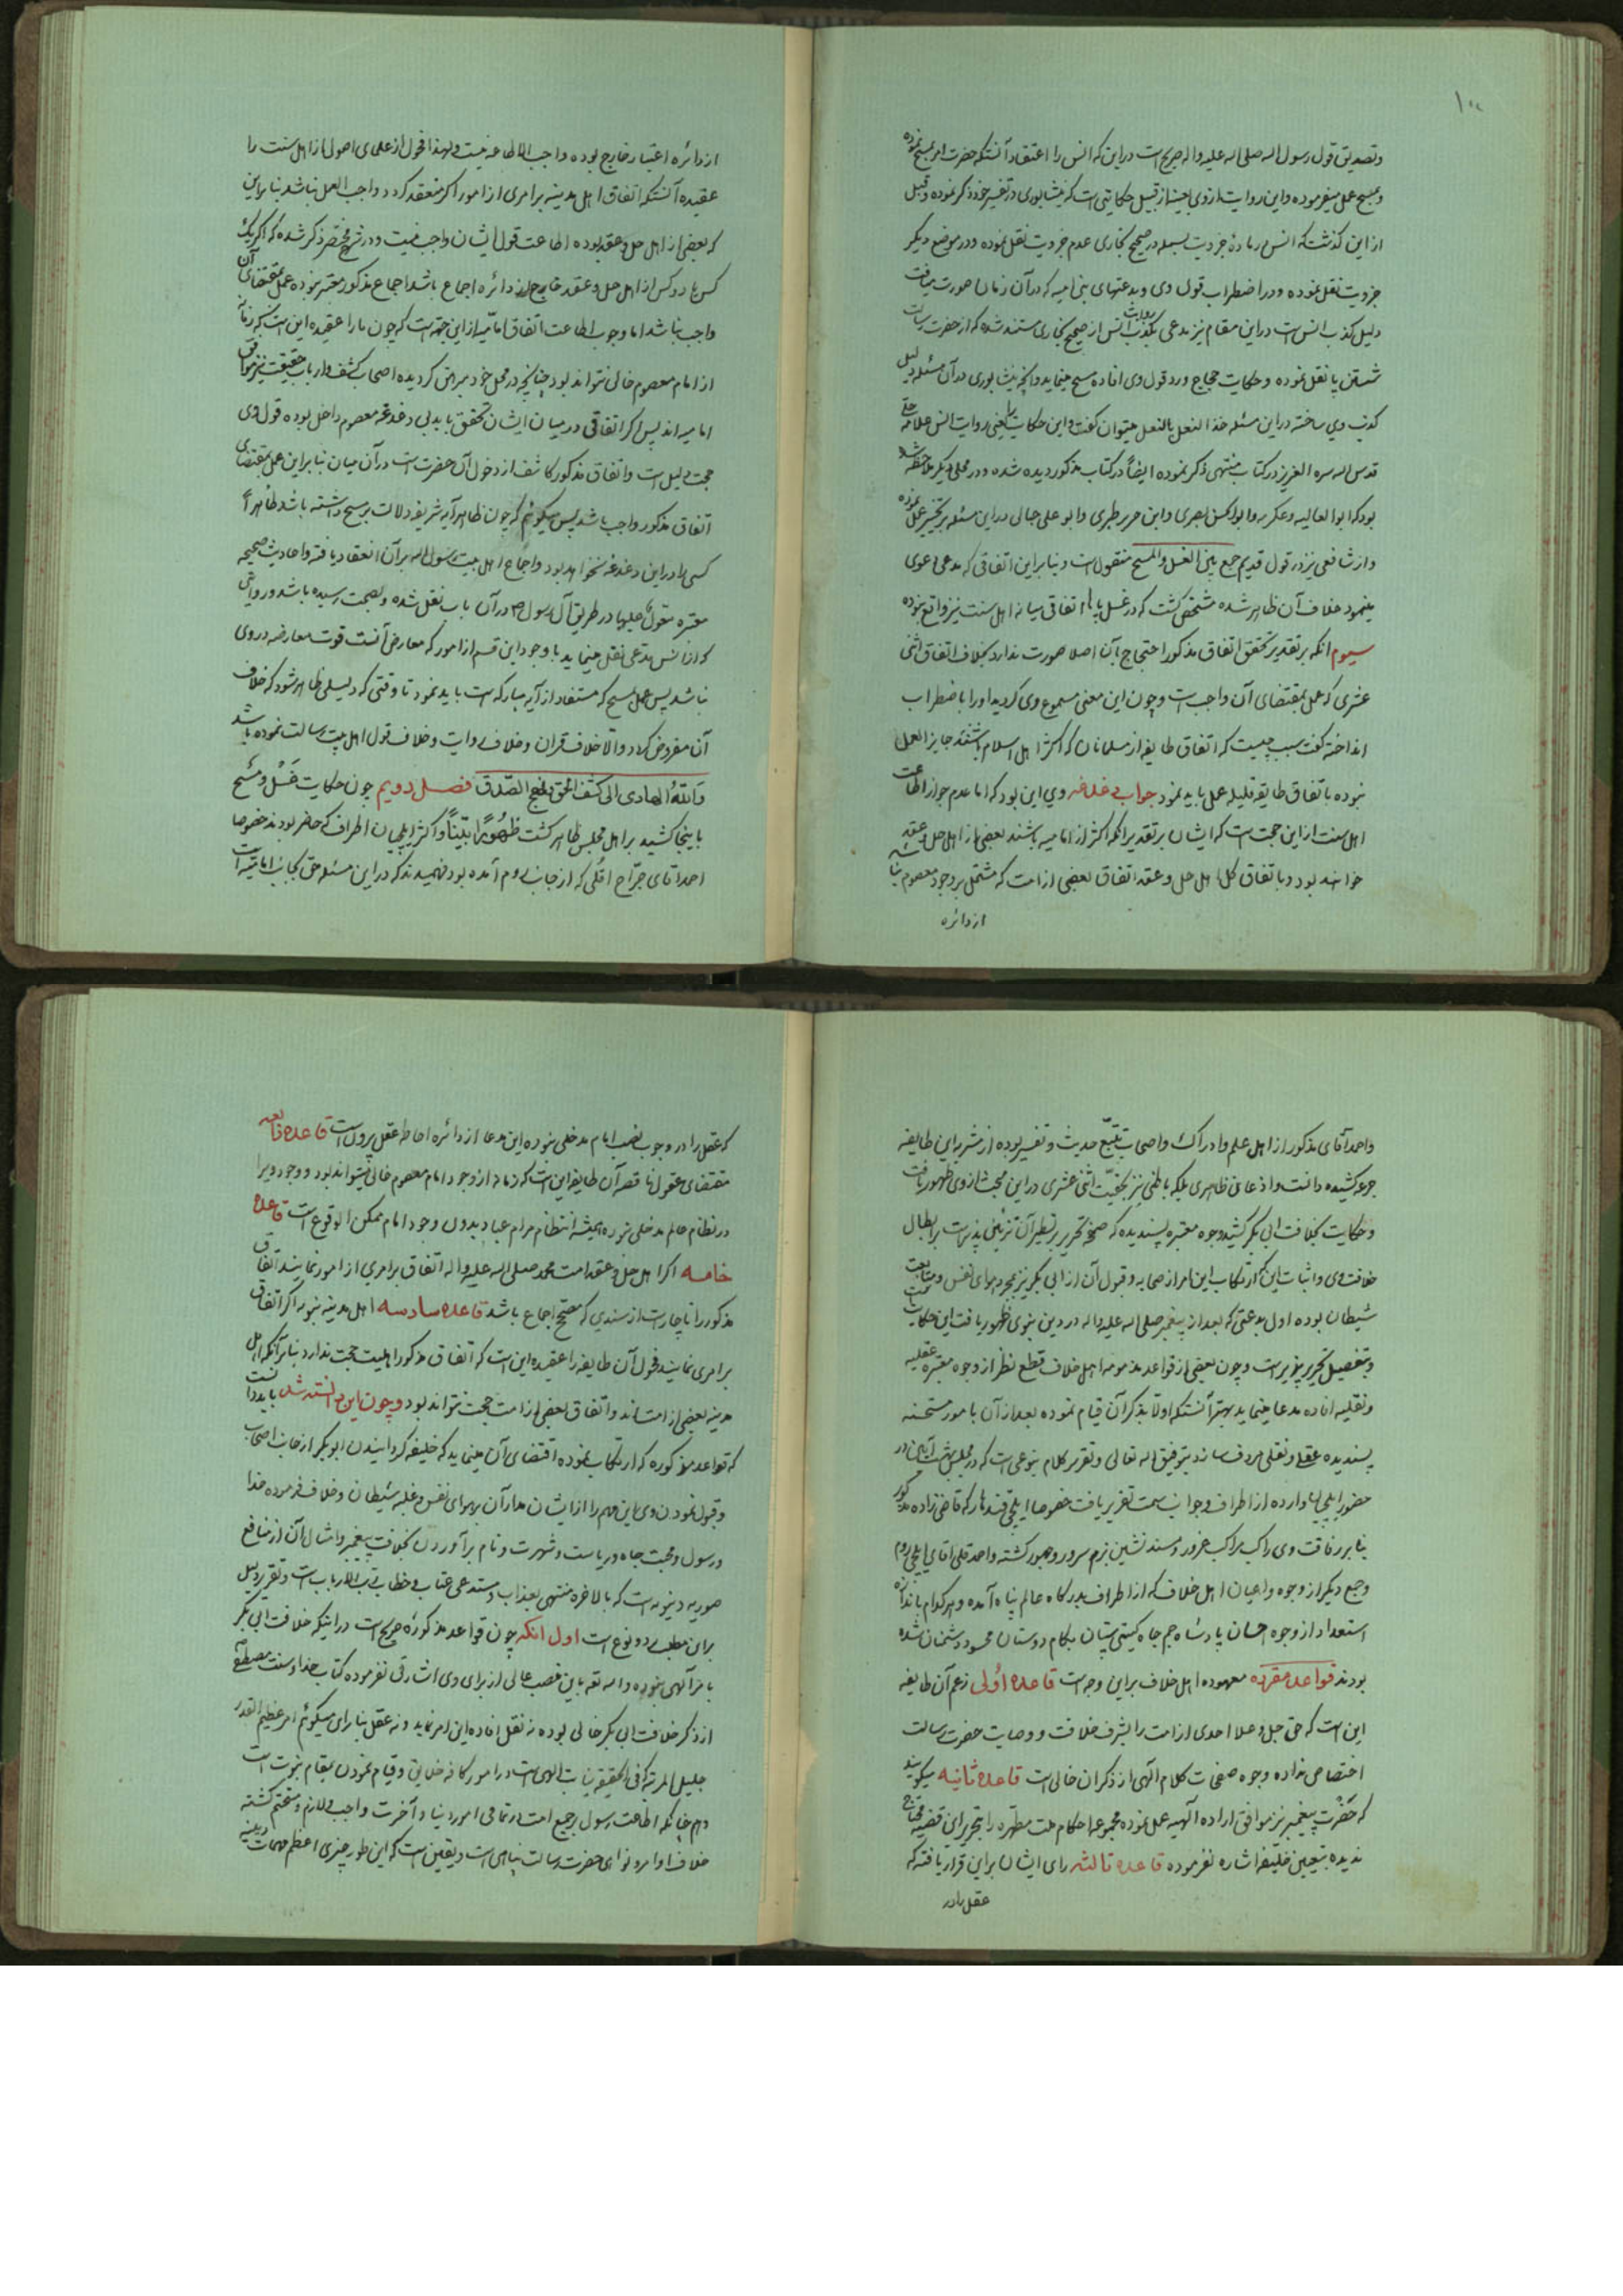 ۱۰۰
وتصدیق قول رسول اله صلی اله علیه واله صریح است دراین که انس را اعتقاد آنستکه حضرت امر بمسح نموده
وبمسح عمل میفرموده واین روایت ازوی بعینه از قبیل حکایتی است که نیشابوری در تفسیر خود ذکر نموده وقبل
ازاین گذشت که انس در ماده جزویت بسمله در صحیح بخاری عدم جزویت نقل نموده ودر موضع دیگر
جزویت نقل نموده ودر اضطراب قول وی وبدعتهای بنی امیه که درآن زمان صورت میافت
دلیل کذب انس است دراین مقام نیز مدعی بکذب روایت انس از صحیح بخاری مستند شده که از حضرت رسالت
شستن پا نقل نموده وحکایت حجاج ورد قول وی افاده مسح مینماید وانچه نیشابوری درآن مسئله دلیل
کذب وی ساخته دراین مسئله حذا النعل بالنعل میتوان گفت واین حکایت را یعنی روایت انس علامه حلی
قدس اله سره العزیز در کتاب منتهی ذکر نموده ایضاً درکتاب مذکور دیده شده ودر محلی دیگر ملاحظه شد
بود که ابوالعالیه وعکرمه وابوالحسن بصری وابن جریر طبری وابو علی جبالی دراین مسئله بر تخییر عمل نموده
واز شافعی نیز در قول قدیم جمع بین الغسل والمسح منقول است وبنابراین اتفاقی که مدعی دعوی
مینمود خلاف آن ظاهر شده مشخص گشت که در غسل پاها اتفاقی میانه اهل سنت نیز واقع نبوده
سیوم انکه بر تقدیر تحقق اتفاق مذکور احتجاج بآن اصلا صورت ندارد بخلاف اتفاق اثنی
عشری که عمل بمقتضای آن واجب است وچون این معنی مسموع وی گردید اورا باضطراب
انداخته گفت سبب چیست که اتفاق طایفه از مسلمانان که اکثر اهل اسلام باشند جایز العمل
نبوده باتفاق طایفه قلیله عمل باید نمود جواب دغدغه وی این بود که اما عدم جواز اطاعت
اهل سنت ازاین جهت است که ایشان بر تقدیر انکه اکثر از امامیه باشند بعضی از اهل حل وعقد
خواهند بود وباتفاق کل اهل حل وعقد اتفاق بعضی از امت که مشتمل بر وجود معصوم نباشد
از دائره
از دائره اعتبار خارج بوده واجب الاطاعه نیست ولهذا فحول از علمای اصول از اهل سنت را
عقیده آنستکه اتفاق اهل مدینه بر امری از امور اگر منعقد گردد واجب العمل نباشد بنابراین
که بعضی از اهل حل وعقد بوده اطاعت قول ایشان واجب نیست ودر شرح مختصر ذکر شده که اگر یک
کس یا دو کس از اهل حل وعقد خارج از دائره اجماع باشد اجماع مذکور معتبر نبوده عمل بمقتضای آن
واجب نباشد اما وجوب اطاعت اتفاق امامیه ازاین جهت است که چون مارا عقیده این است که زمانه
از امام معصوم خالی نتواند بود چنانچه در محل خود مبرهن گردیده اصحاب کشف وارباب حقیقت نیز موافق
امامیه اند پس اگر اتفاقی در میان ایشان تحقق یابد بی دغدغه معصوم داخل بوده قول وی
حجت ودلیل است واتفاق مذکور کاشف از دخول آن حضرت است درآن میان بنابراین عمل بمقتضای
اتفاق مذکور واجب باشد پس میگوئیم که چون ظاهر آیه شریفه دلالت بر مسح داشته باشد ظاهراً
کسی را دراین دغدغه نخواهد بود واجماع اهل بیت رسول اله برآن انعقاد یافته واحادیث صحیحه
معتبره منقول علیها در طریق آل رسول ص درآن باب نقل شده وبصحت رسیده باشد وروایتی
که از انس مدعی نقل مینماید باوجود این قسم از امور که معارض آنست قوت معارضه دروی
نباشد پس عمل بمسح که مستفاد از آیه مبارکه است باید نمود تا وقتی که دلیلی ظاهر شود که خلاف
آن مفروض گردد والا خلاف قران وخلاف روایت وخلاف قول اهل بیت رسالت نموده باشد
وَاللّهُ الهادی الی کشف الحق ونهج الصّدق فصل دویم چون حکایت غَسْل ومَسْح
باینجا کشید بر اهل مجلس ظاهر گشت ظُهُوراً بیّناً واکثر ایلچیان اطراف که حاضر بودند خصوصا
احمد اقای جرّاح اقلی که از جانب روم آمده بود فهمیدند که دراین مسئله حق بجانب امامیه است
واحمد آقای مذکور از اهل علم وادراک واصحاب تتبّع حدیث وتفسیر بوده از مشرب این طایفه
جرعه کشیده دانست واذعانی ظاهری بلکه باطنی نیز بحقیّت اثنی عشری دراین مبحث ازوی ظهور یافت
وحکایت بخلافت ابی بکر کشید وجوه معتبره پسندیده که صفحه تحریر بتسطیر آن تزئین پذیر است بر ابطال
خلافت وی واثبات این که ارتکاب این امر از صحابه وقبول آن از ابی بکر نیز بمجرد هوای نفس ومتابعت
شیطان بوده اول بدعتی که بعد از پیغمبر صلی اله علیه واله در دین نبوی ظهور یافت این حکایت است
وتفصیل تحریر پذیر است وچون بعضی از قواعد مذمومه اهل خلاف قطع نظر از وجوه معتبره عقلیه
ونقلیه افاده مدعا مینماید بهتر آنستکه اولاً بذکر آن قیام نموده بعد از آن بامور مستحسنه
پسندیده عقلی ونقلی مردف سازد بتوفیق اله تعالی وتقریر کلام بنوعی است که در مجلس بهشت آیین در
حضور ایلچیان وارده از اطراف وجوانب سمت تقریر یافت خصوصا ایلچی قندهار که قاضی زاده مذکور
بنابر رفاقت وی راکب مراکب غرور ومسند نشین بزم سرور وحبور گشته واحمد قلی اقای ایلچی روم
وجمع دیگر از وجوه واعیان اهل خلاف که از اطراف بدرگاه عالم پناه آمده وهرکدام باندازه
استعداد از وجوه احسان پادشاه جم جاه گیتی ستان بکام دوستان محسود دشمنان شده
بودند قواعد مقرره معهوده اهل خلاف براین وجه است قاعده اُولی زعم آن طایفه
این است که حق جل وعلا احدی از امت را بشرف خلافت ووصایت حضرت رسالت
اختصاص نداده وجوه صفحات کلام آلهی از ذکر ان خالی است قاعده ثانیه میگویند
که حَضْرت پیغمبر نیز موافق اراده آلهیه عمل نموده مجموعه احکام ملت مطهّره را بتحریر این قضیه محتاج
ندیده بتعیین خلیفه اشاره نفرموده قاعده ثالثه رای ایشان براین قرار یافته که
عقل را در
که عقل را در وجوب نصب امام مدخلی نبوده این مدعا از دائره احاطه عقل بیرون است قاعده رابعه
مقتضای عقول ناقصه آن طایفه این است که زمانه از وجود امام معصوم خالی میتواند بود ووجود ویرا
در نظام عالم مدخلی نبوده همیشه انتظام مرام عباد بدون وجود امام ممکن الوقوع است قاعده
خامسه اگر اهل حل وعقد امت محمد صلی اله علیه واله اتفاق بر امری از امور نمایند اتفاق
مذکور را ناچار است از سندی که مصحح اجماع باشد قاعده سادسه اهل مدینه نبویه اگر اتفاق
بر امری نمایند فحول آن طایفه را عقیده این است که اتفاق مذکور اهلیت حجت ندارد بنابر آنکه اهل
مدینه بعضی از امت اند واتّفاق بعضی از امت حجت نتواند بود وچون این دانسته شد باید دانست
که قواعد مذکوره که ارتکاب نموده اقتضای آن مینماید که خلیفه گردانیدن ابوبکر از جانب اصحاب
وقبول نمودن وی این مهم را از ایشان مدار آن بر هوای نفس وغلبه شیطان وخلاف فرموده خدا
ورسول ومحبت جاه وریاست وشهرت ونام برآوردن بخلافت پیغمبر وامثال آن از منافع
صوریه دنیویه است که بالاخره منتهی بعذاب ومستدعی عتاب وخطاب رب الارباب است وتقریر دلیل
براین مطلب دو نوع است اول انکه چون قواعد مذکوره صریح است دراینکه خلافت ابی بکر
بامر آلهی نبوده واله تعالی باین منصب عالی از برای وی اشارتی نفرموده کتاب خدا وسنت مصطفی
از ذکر خلافت ابی بکر خالی بوده نه نقل افاده این امر نماید ونه عقل بنابرای میگوئیم امر عظیم القدر
جلیل المرتبه که فی الحقیقة نیابت الهی است در امور کافه خلایق وقیام نمودن بمقام نبوت است
وهم چنانکه اطاعت رسول بر جمیع امت در تمامی امور دنیا وآخرت واجب ولازم ومتحتم گشته
خلاف اوامر ونواهی حضرت رسالت مناهی است ویقین است که این طور چیزی اعظم مهمات دینیه